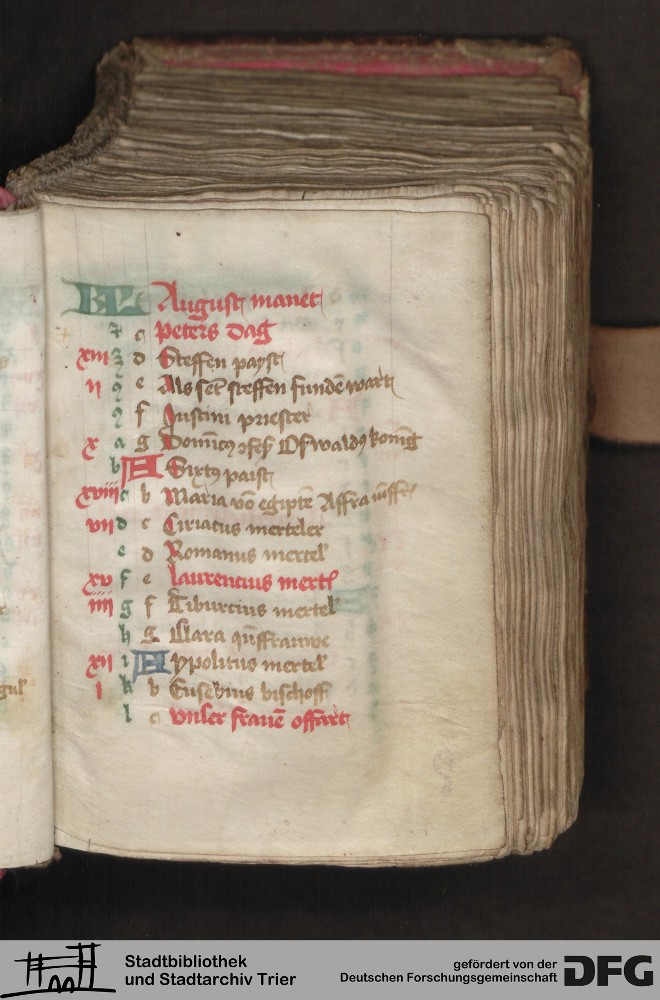 KL August manet
c Peters dag
xiii d Steffen payst
ii e Als sēt steffen fundē wart
f Justini priester
x a g Dominicꝰ Oswaldꝰ konig
b A Sixtꝰ paist
xviii c b Maria vō egiptē Affra iūffr
vii d c Ciriacus merteler
e d Romanus mertel
xv f e Laurencius mertl
iiii g f Tiburcius mertel
h g Clara iūffrauwe
xii i A Ypolitus mertel
i k b Eusebius bischoff
l c Vnser frauē offart
Stadtbibliothek
und Stadtarchiv Trier
gefördert von der
Deutschen Forschungsgemeinschaft
DFG